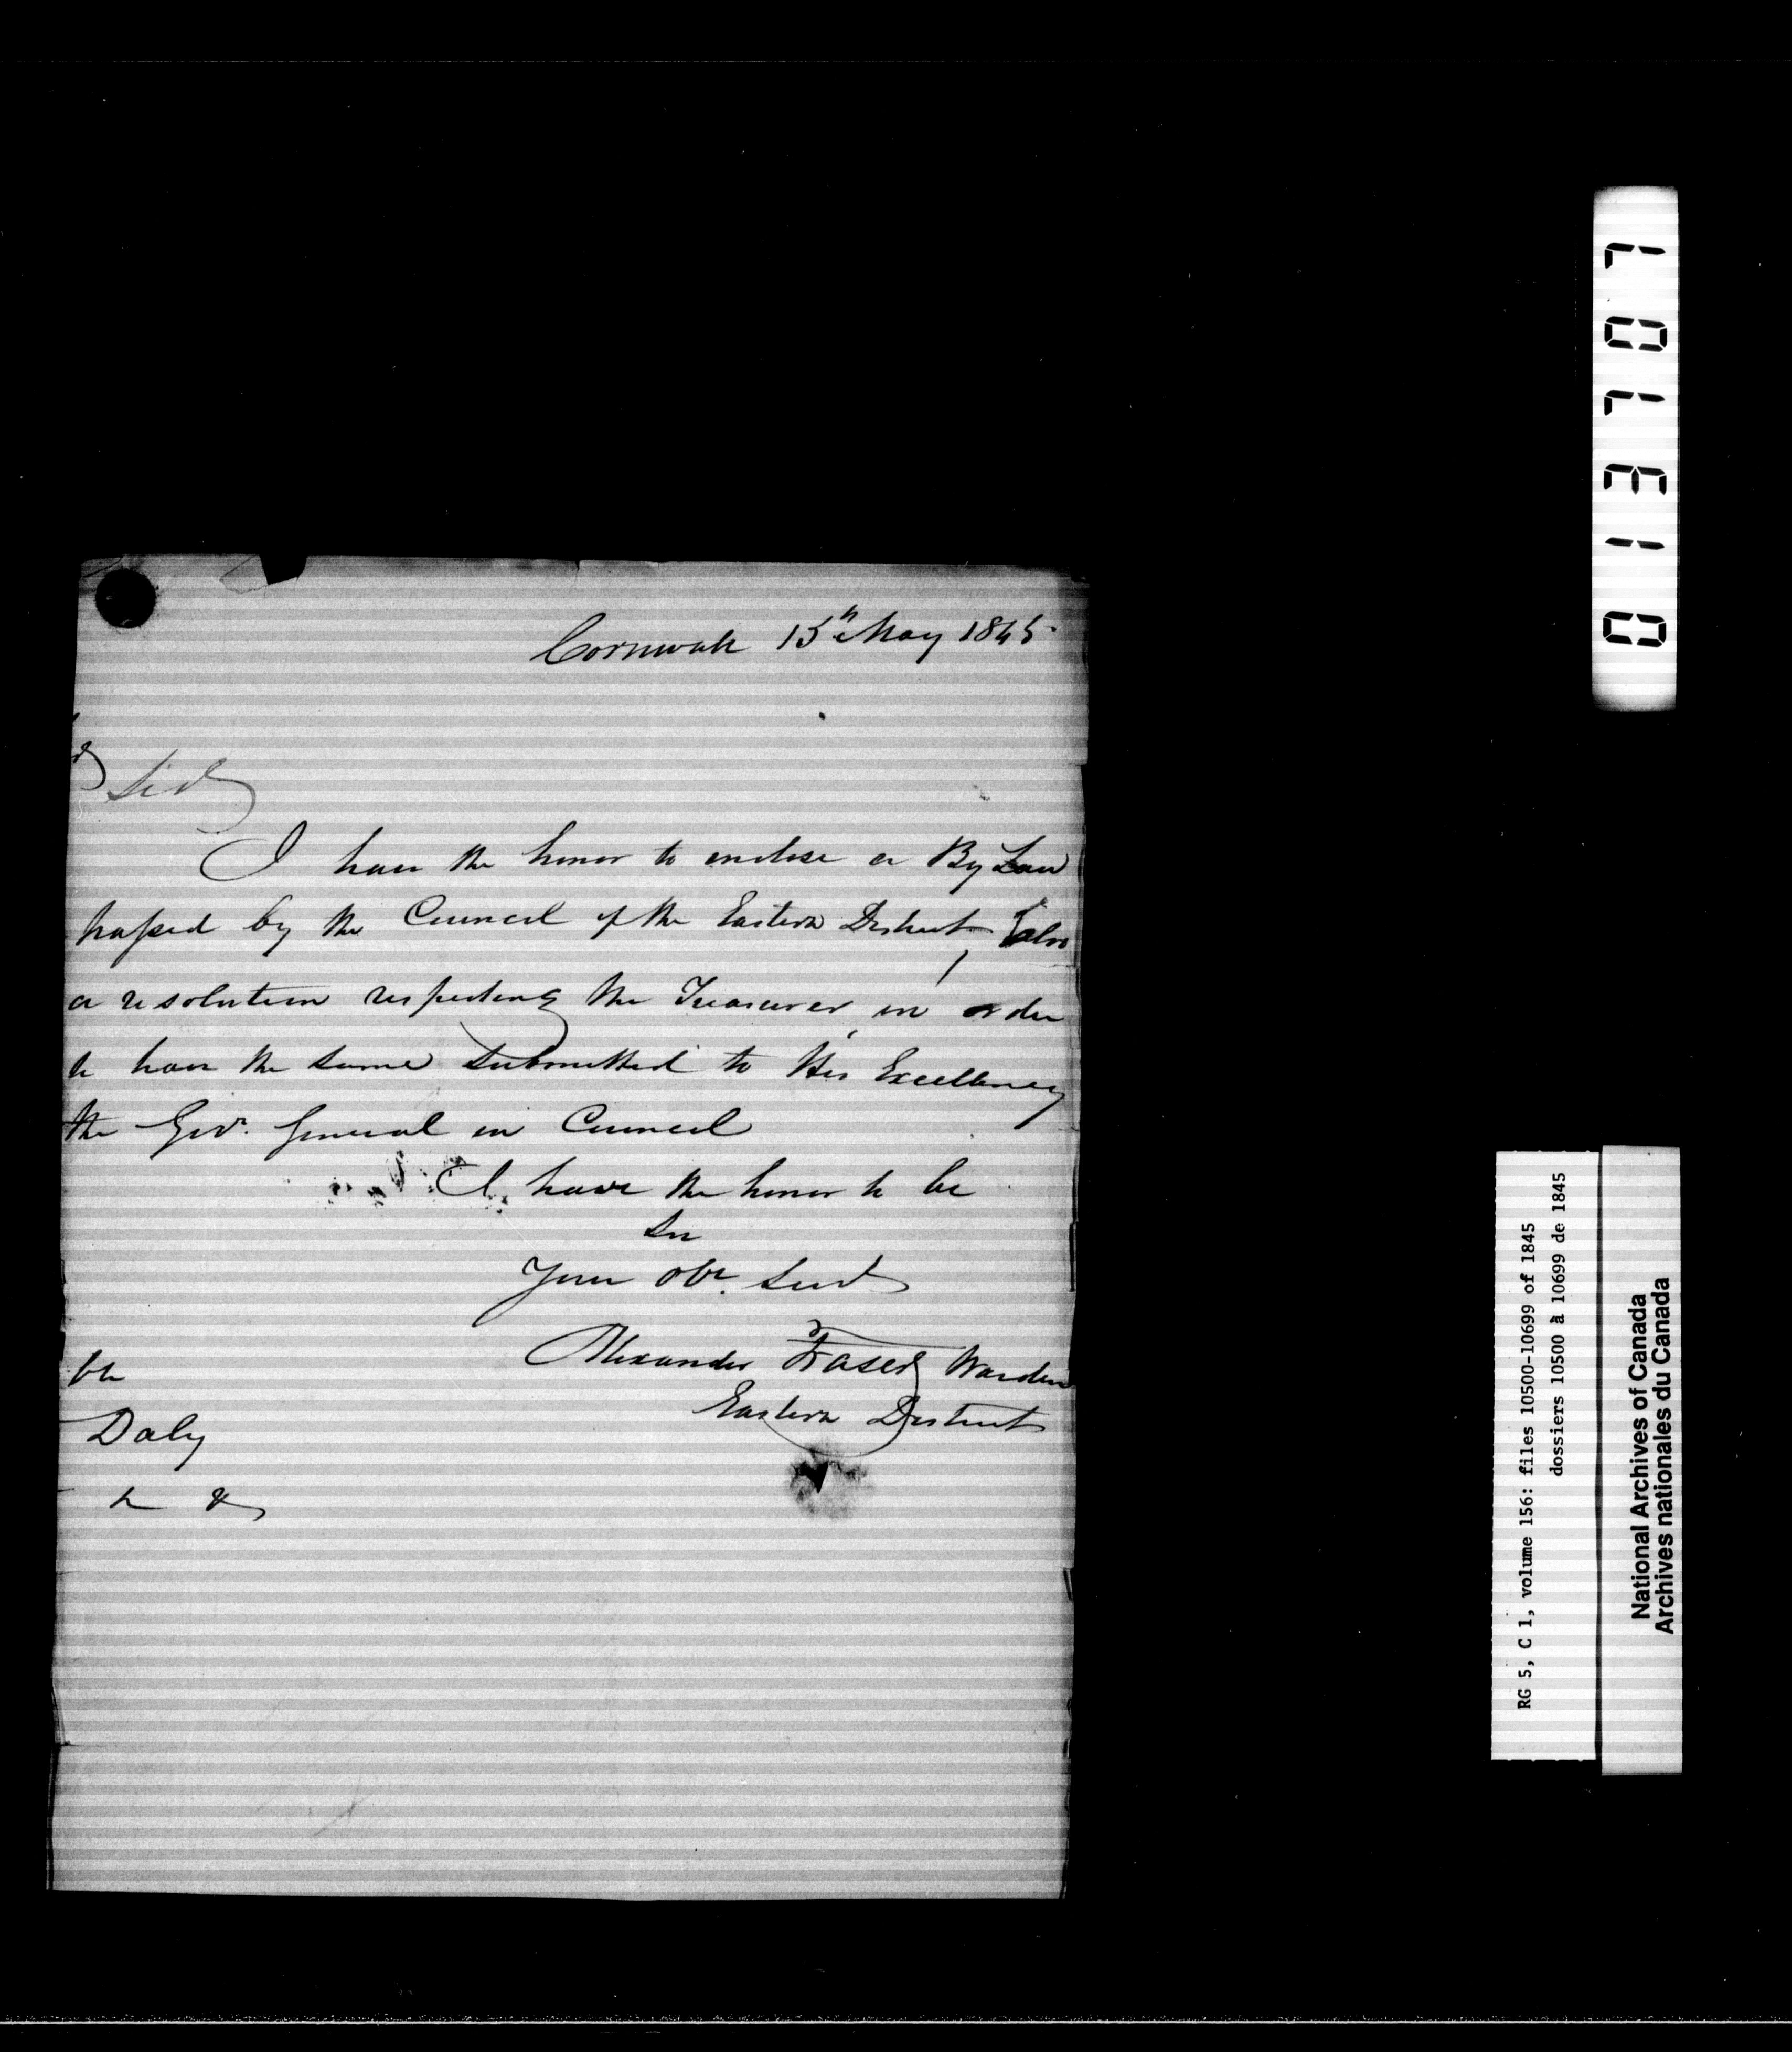 Cornwall 15th May 1845
Sir
I have the honor to enclose a By Law
passed by the Council of the Eastern District, also
a resolution respecting the Treasurer, in order
to have the same submitted to His Excellency
the Gov. General in Council
I have the honor to be
Sir
Your Obt. Servt
Alexander Fraser Warden
Eastern District
ble
Daly
&
013101
RG 5, C 1, volume 156: files 10500-10699 of 1845
dossiers 10500 à 10699 de 1845
National Archives of Canada
Archives nationales du Canada